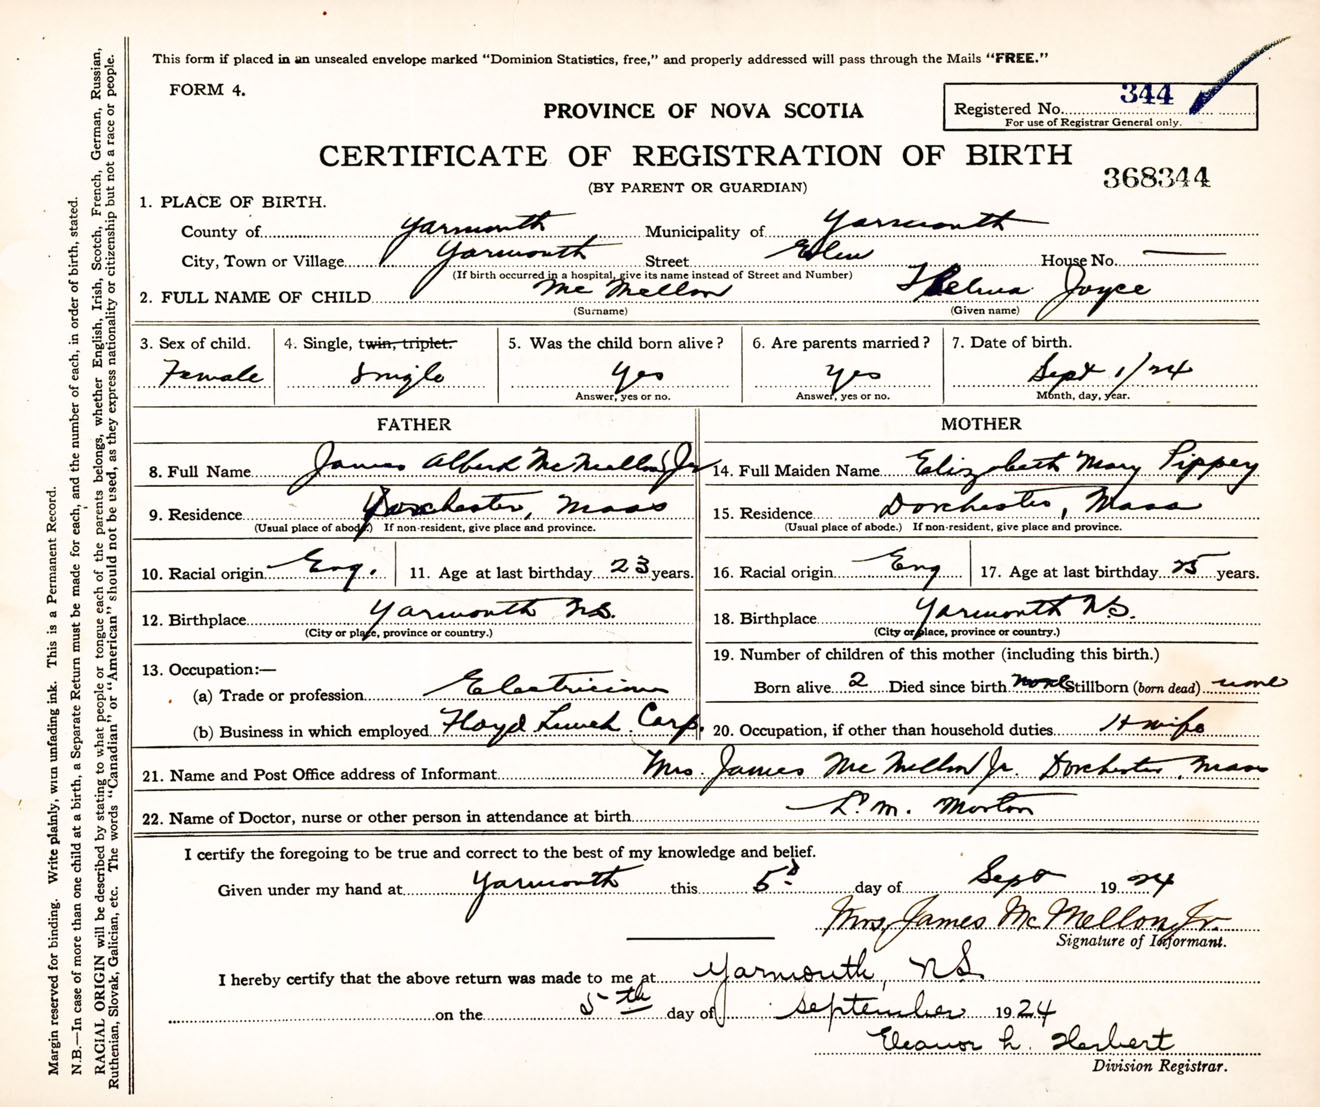 This form if placed in an unsealed envelope marked “Dominion Statistics, free,” and properly addressed will pass through the Mails “FREE.”
FORM 4.
PROVINCE OF NOVA SCOTIA
Registered No. 344
For use of Registrar General only.
CERTIFICATE OF REGISTRATION OF BIRTH
368344
(BY PARENT OR GUARDIAN)
1. PLACE OF BIRTH.
County of Yarmouth Municipality of Yarmouth
City, Town or Village Yarmouth Street House No. —
(If birth occurred in a hospital, give its name instead of Street and Number)
2. FULL NAME OF CHILD Mc Mellon Thelma Joyce
(Surname) (Given name)
3. Sex of child. 4. Single, twin, triplet. 5. Was the child born alive? 6. Are parents married? 7. Date of birth.
Female Single Yes Yes Sept 1/24
Answer, yes or no. Answer, yes or no. Month, day, year.
FATHER MOTHER
8. Full Name James Albert McMellon Jr 14. Full Maiden Name Elizabeth Mary Pippey
9. Residence Dorchester, Mass 15. Residence Dorchester, Mass
(Usual place of abode.) If non-resident, give place and province. (Usual place of abode.) If non-resident, give place and province.
10. Racial origin Eng. 11. Age at last birthday 23 years. 16. Racial origin Eng 17. Age at last birthday 25 years.
12. Birthplace Yarmouth N.S. 18. Birthplace Yarmouth N.S.
(City or place, province or country.) (City or place, province or country.)
13. Occupation:—
(a) Trade or profession Electrician
(b) Business in which employed Floyd Corp.
19. Number of children of this mother (including this birth.)
Born alive 2 Died since birth none Stillborn (born dead) none
20. Occupation, if other than household duties H wife
21. Name and Post Office address of Informant Mrs. James Mc Mellon Jr. Dorchester, Mass
22. Name of Doctor, nurse or other person in attendance at birth L. M. Morton
I certify the foregoing to be true and correct to the best of my knowledge and belief.
Given under my hand at Yarmouth this 5th day of Sept 1924
Mrs, James Mc Mellon, Jr.
Signature of Informant.
I hereby certify that the above return was made to me at Yarmouth, N.S.
on the 5th day of September 1924
Eleanor L. Herbert
Division Registrar.
Margin reserved for binding. Write plainly, with unfading ink. This is a Permanent Record.
N.B.—In case of more than one child at a birth, a Separate Return must be made for each, and the number of each, in order of birth, stated.
RACIAL ORIGIN will be described by stating to what people or tongue each of the parents belongs, whether English, Irish, Scotch, French, German, Russian,
Ruthenian, Slovak, Galician, etc. The words “Canadian” or “American” should not be used, as they express nationality or citizenship but not a race or people.